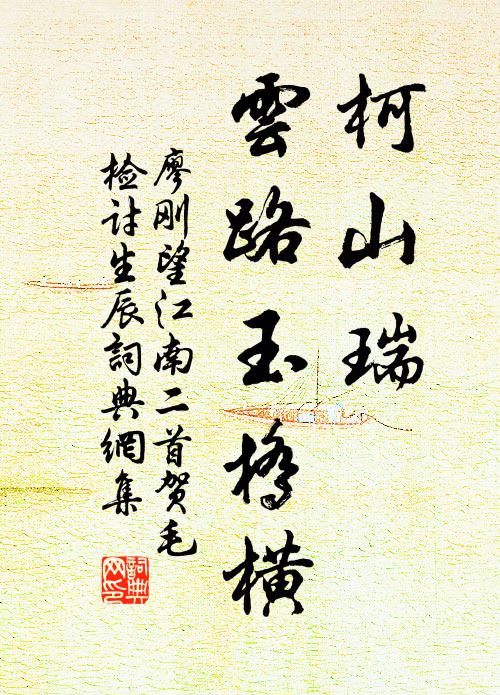 柯山瑞
雲路玉橋橫
廖刚望江南二首贺毛
检讨生辰詞典網集
詞典网印